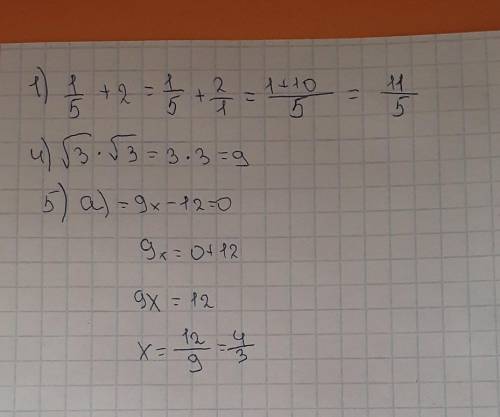 1) 1/5 + 2 = 1/5 + 2/1 = 1+10/5 = 11/5
4) √3 · √3 = 3 · 3 = 9
5) a) = 9x - 12 = 0
9x = 0+12
9x = 12
x = 12/9 = 4/3